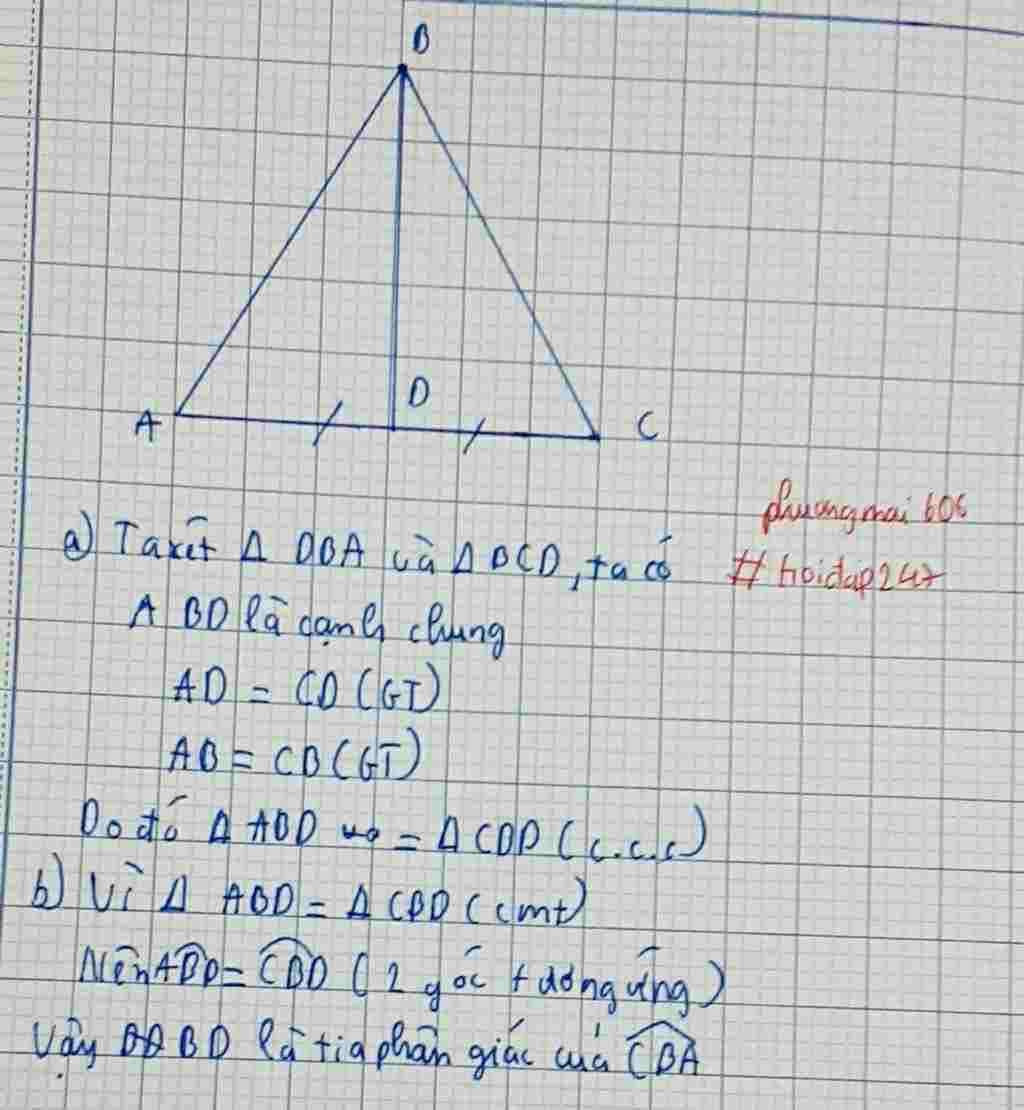 B
D
A
C
phuongmai 606
a) Ta xét Δ DBA và Δ BCD, ta có
# hoidap247
A BD là cạnh chung
AD = CD (GT)
AB = CB (GT)
Do đó Δ ABD = Δ CBD (c.c.c)
b) Vì Δ ABD = Δ CBD (cmt)
Nên ABD = CBD (2 góc tương ứng)
Vậy BD là tia phân giác của CBA